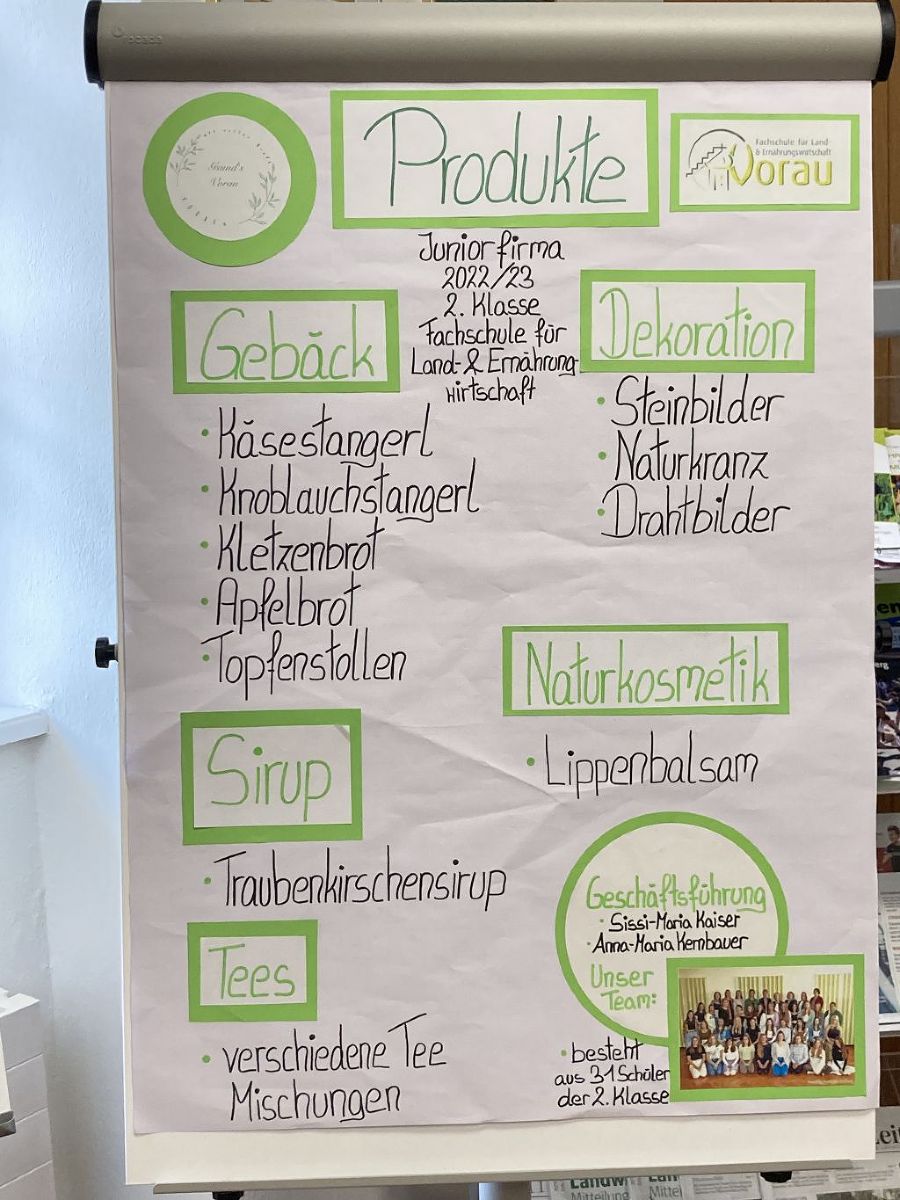 Produkte
Gsund's
Vorau
Fachschule für Land-
& Ernährungswirtschaft
Vorau
Juniorfirma
2022/23
2. Klasse
Fachschule für
Land- & Ernährung-
wirtschaft
Gebäck
• Käsestangerl
• Knoblauchstangerl
• Kletzenbrot
• Apfelbrot
• Topfenstollen
Dekoration
• Steinbilder
• Naturkranz
• Drahtbilder
Naturkosmetik
• Lippenbalsam
Sirup
• Traubenkirschensirup
Tees
• verschiedene Tee
Mischungen
Geschäftsführung
• Sissi-Maria Kaiser
• Anna-Maria Kernbauer
Unser
Team:
• besteht
aus 31 Schüler
der 2. Klasse
Landw
Mitteilung